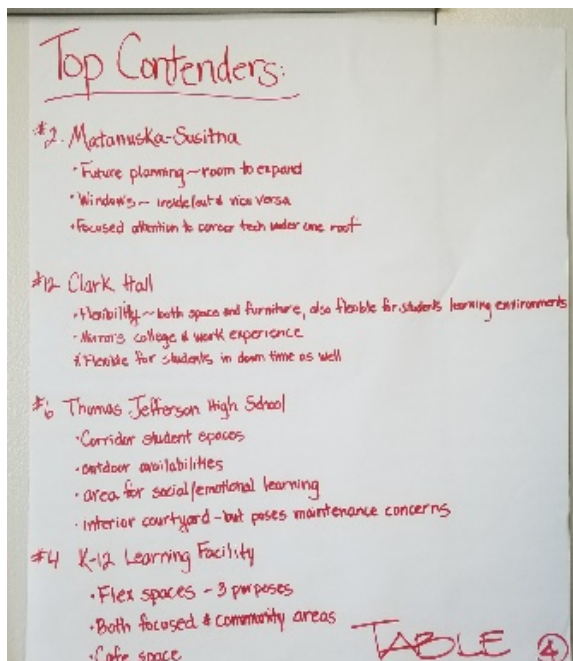 Top Contenders:
#2. Matanuska-Susitna
• Future planning ~ room to expand
• Window's ~ inside/out & vice versa
• Focused attention to career tech under one roof
#12 Clark Hall
• Flexibility ~ both space and furniture, also flexible for students learning environments
• Mirrors college & work experience
* Flexible for students in down time as well
#6 Thomas Jefferson High School
• Corridor student spaces
• outdoor availabilities
• area for social/emotional learning
• interior courtyard - but poses maintenance concerns
#4 K-12 Learning Facility
• Flex spaces - 3 purposes
• Both focused & community areas
• Cafe space
TABLE 4